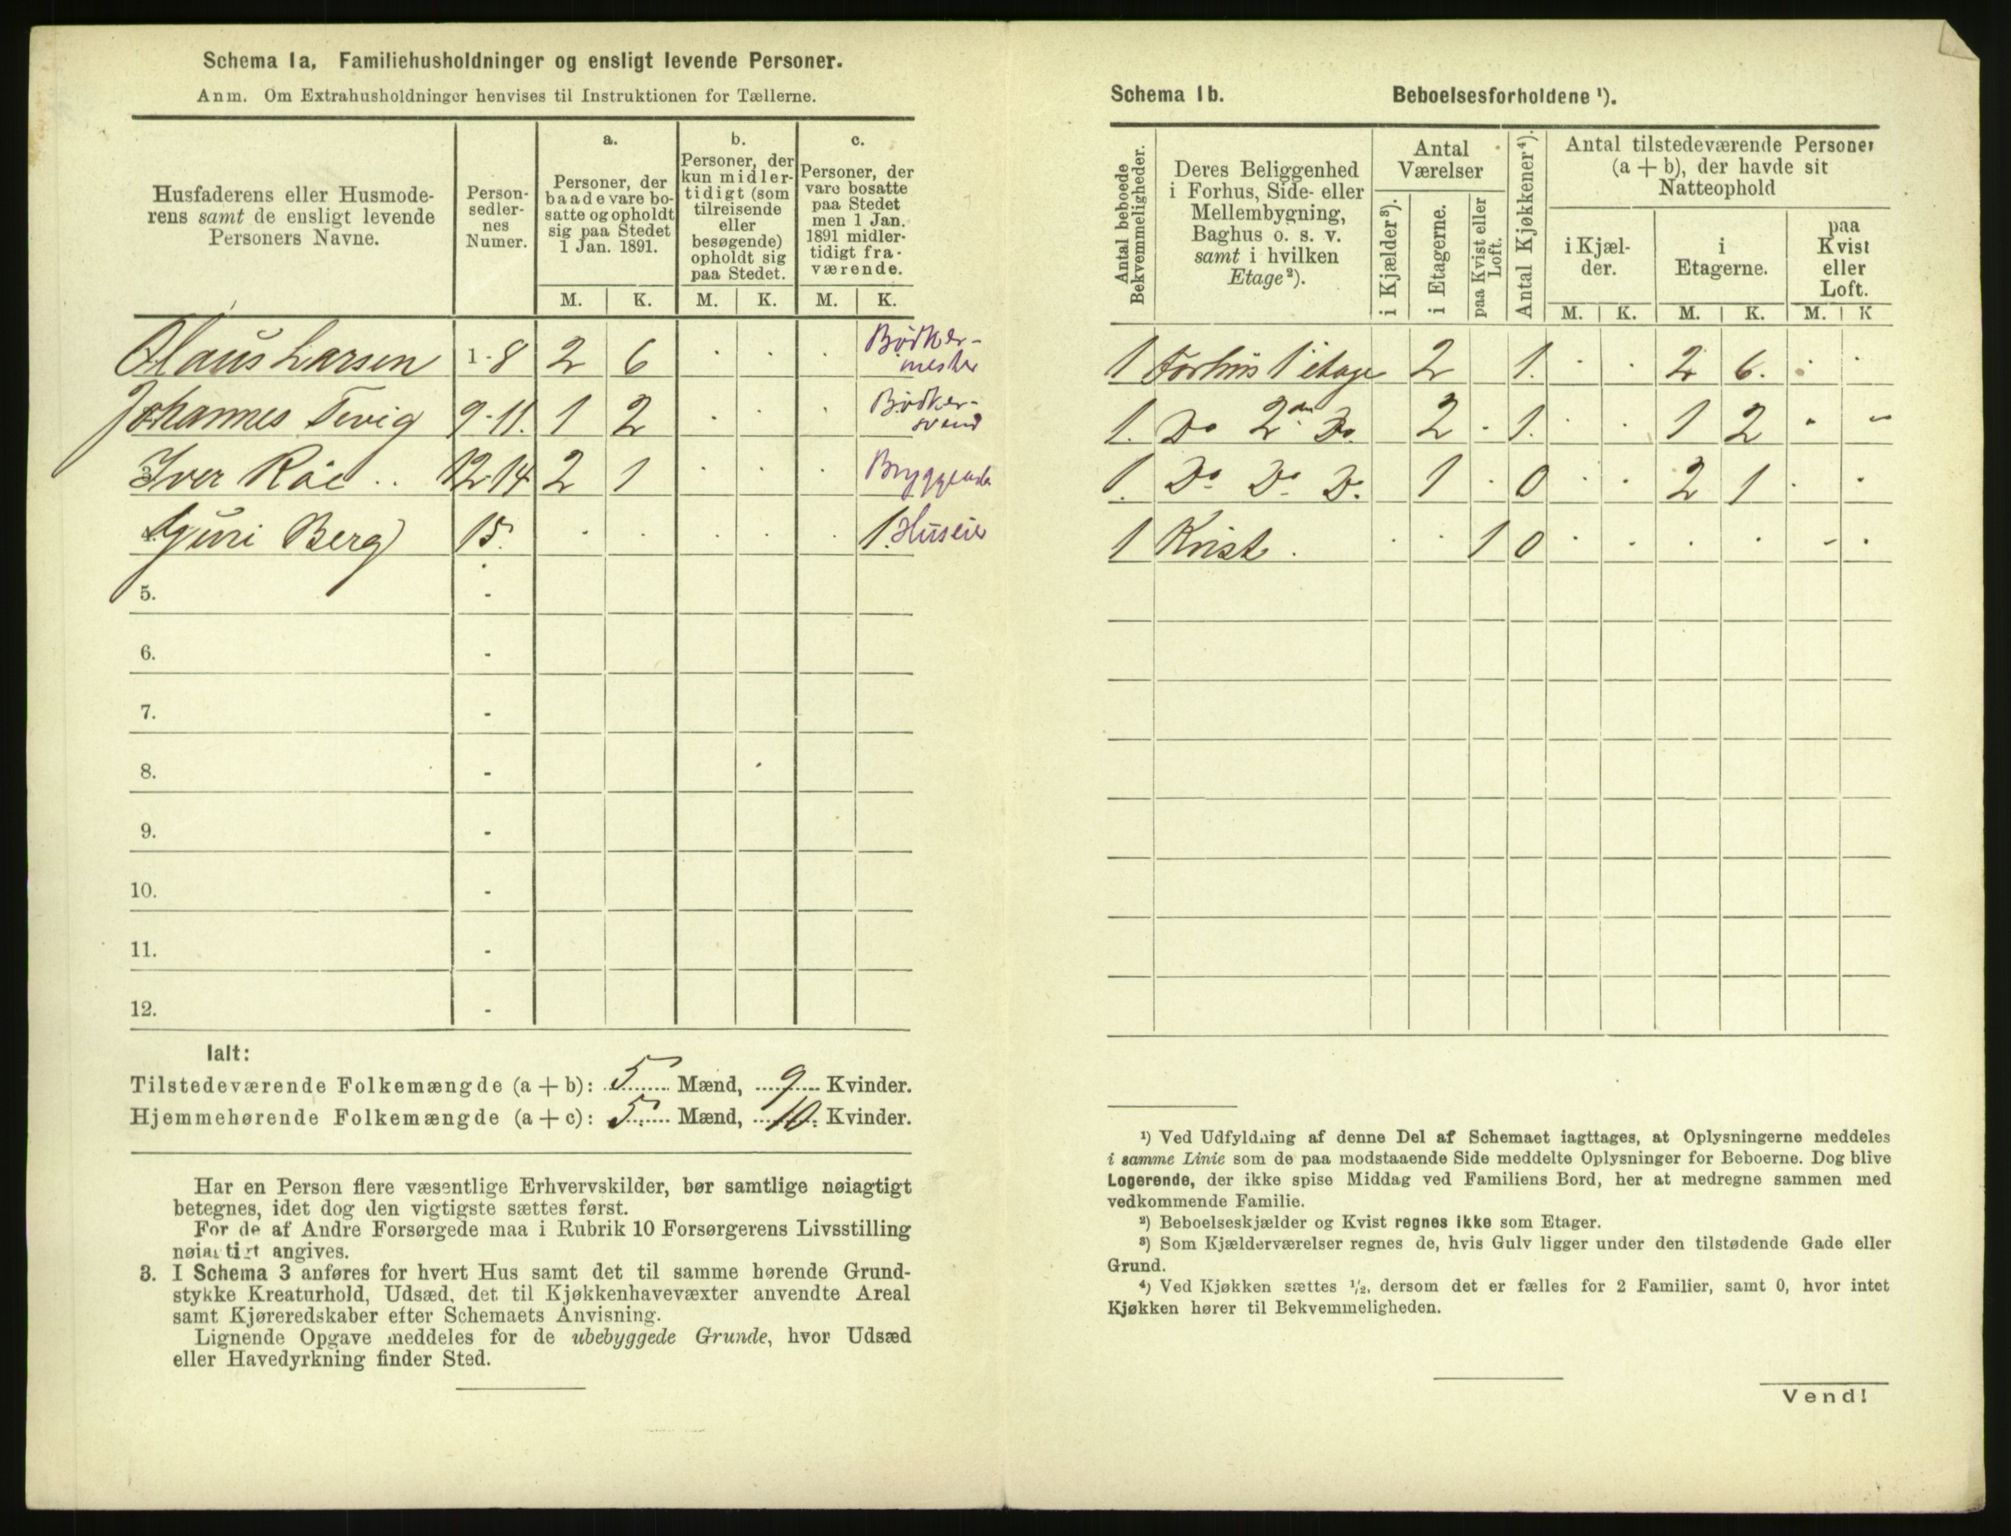 Schema 1a. Familiehusholdninger og ensligt levende Personer.
Anm. Om Extrahusholdninger henvises til Instruktionen for Tællerne.
Husfaderens eller Husmode-
rens samt de ensligt levende
Personers Navne.
Person-
sedler-
nes
Numer.
a.
Personer, der
baade vare bo-
satte og opholdt
sig paa Stedet
1 Jan. 1891.
M. K.
b.
Personer, der
kun midler-
tidigt (som
tilreisende
eller
besøgende)
opholdt sig
paa Stedet.
M. K.
c.
Personer, der
vare bosatte
paa Stedet
men 1 Jan.
1891 midler-
tidigt fra-
værende.
M. K.
Olaus Larsen 1-8 2 6 . . . Bødker-
mester
Johannes Tevig 9-11. 1 2 . . . Bødker-
svend
3. Iver Roe .. 12-14 2 1 . . .
4. Guri Berg 15. . . . . . 1. Huseier
5. -
6. -
7. -
8. -
9. -
10. -
11. -
12. -
Ialt:
Tilstedeværende Folkemængde (a + b): 5 Mænd, 9 Kvinder.
Hjemmehørende Folkemængde (a + c): 5 Mænd, 10 Kvinder.
Har en Person flere væsentlige Erhvervskilder, bør samtlige nøiagtigt
betegnes, idet dog den vigtigste sættes først.
For de af Andre Forsørgede maa i Rubrik 10 Forsørgerens Livsstilling
nøiagtigt angives.
3. I Schema 3 anføres for hvert Hus samt det til samme hørende Grund-
stykke Kreaturhold, Udsæd, det til Kjøkkenhavevæxter anvendte Areal
samt Kjøreredskaber efter Schemaets Anvisning.
Lignende Opgave meddeles for de ubebyggede Grunde, hvor Udsæd
eller Havedyrkning finder Sted.
Schema 1b. Beboelsesforholdene ¹).
Antal beboede
Bekvemmeligheder.
Deres Beliggenhed
i Forhus, Side- eller
Mellembygning,
Baghus o. s. v.
samt i hvilken
Etage²).
Antal
Værelser
i Kjælder³).
i Etagerne.
paa Kvist eller
Loft.
Antal Kjøkkener⁴).
Antal tilstedeværende Personer
(a + b), der havde sit
Natteophold
i Kjæl-
der.
i
Etagerne.
paa
Kvist
eller
Loft.
M. K. M. K. M. K
1 Forhus 1 etage 2 1. . . 2 6. . .
1. Do 2den Do. 2 . 1. . . 1 2 . -
1. Do Do. Do. 1 . 0 . . 2 1 . .
1 Kvist . . . 1 0 . . . . - .
¹) Ved Udfyldning af denne Del af Schemaet iagttages, at Oplysningerne meddeles
i samme Linie som de paa modstaaende Side meddelte Oplysninger for Beboerne. Dog blive
Logerende, der ikke spise Middag ved Familiens Bord, her at medregne sammen med
vedkommende Familie.
²) Beboelseskjælder og Kvist regnes ikke som Etager.
³) Som Kjælderværelser regnes de, hvis Gulv ligger under den tilstødende Gade eller
Grund.
⁴) Ved Kjøkken sættes ¹/₂, dersom det er fælles for 2 Familier, samt 0, hvor intet
Kjøkken hører til Bekvemmeligheden.
Vend!